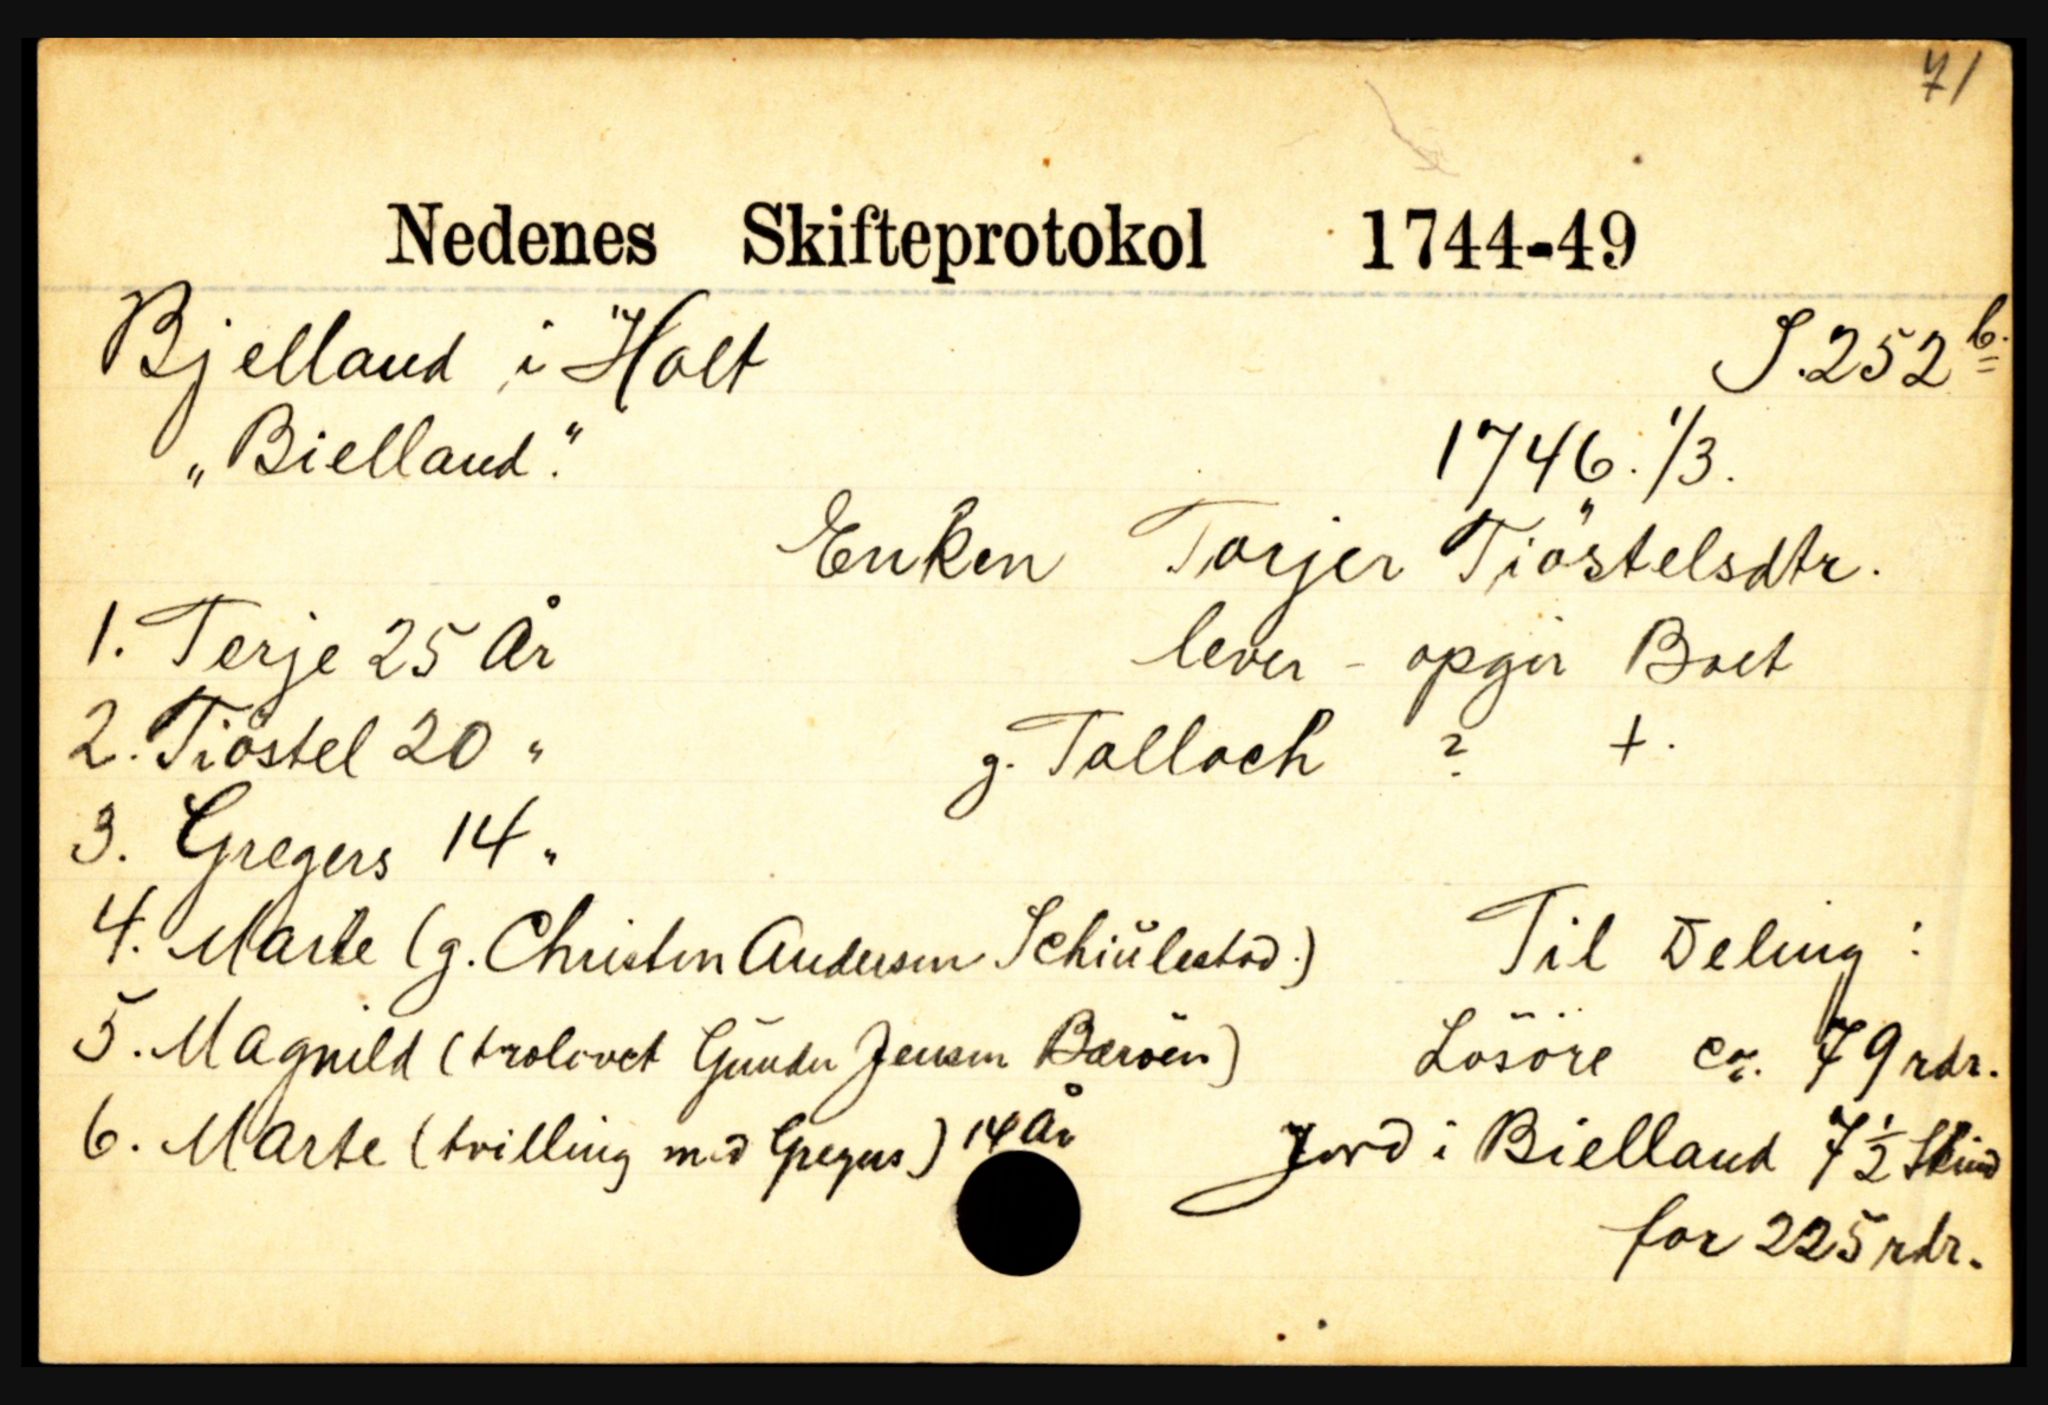 71
Nedenes Skifteprotokol 1744-49
Bjelland i Holt S. 252 b.
„Bielland“. 1746. 1/3.
Enken Torjer Tiöstelsdtr.
1. Terje 25 År lever - opgir Boet
2. Tiöstel 20 " g. Tolloch ? +.
3. Gregers 14 "
4. Marte (g. Christen Andersen Schiülestad.) Til Deling:
5. Magnild (trolovet Gunder Jensen Baröen) Lösöre ca. 79 rdr.
6. Marte (tvilling med Gregers) 14 År Jord i Bielland 7 1/2 Skind
for 225 rdr.